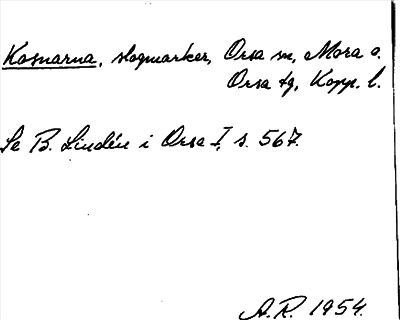 Kasnarna, skogmarker, Orsa sn, Mora o.
Orsa tg, Kopp. l.
Se B. Lindén i Orsa I, s. 567.
A.R. 1954.